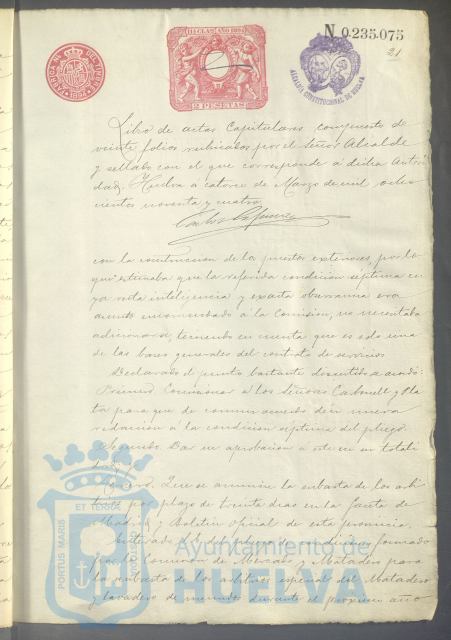 11ª CLASE AÑO 1894
2 PESETAS
N 0.235.075
21
ALCALDIA CONSTITUCIONAL DE HUELVA
Libro de actas Capitulares compuesto de
veinte folios rubricados por el Señor Alcalde
y sellado con el que corresponde á dicha Autori
dad. Huelva á catorce de Marzo de mil ocho
cientos noventa y cuatro.
con la construccion de los puestos exteriores, por lo
que estimaba que la referida condicion septima cu
ya recta inteligencia y exacta observancia era
asunto encomendado á la Comision, no necesitaba
adicionarse, teniendo en cuenta que es solo una
de las bases generales del contrato de servicios
Declarado el punto bastante discutido se acordó:
Primero. Comisionar á los Señores Carbonell y Pla
ta para que de comun acuerdo den nueva
redaccion á la condicion septima del pliego
Segundo. Dar su aprobacion á este en su totali
dad.
Tercero. Que se anuncie la subasta de los arbi
trios por plazo de treinta dias en la Gaceta de
Madrid y Boletin oficial de esta provincia
Enterado del pliego de condiciones formado
por la Comision de Mercado y Matadero para
la subasta de los arbitrios especial del Matadero
y lavadero de menudos durante el proximo año
PORTUS MARIS ET TERRAE CUSTODIA
Ayuntamiento de
HUELVA